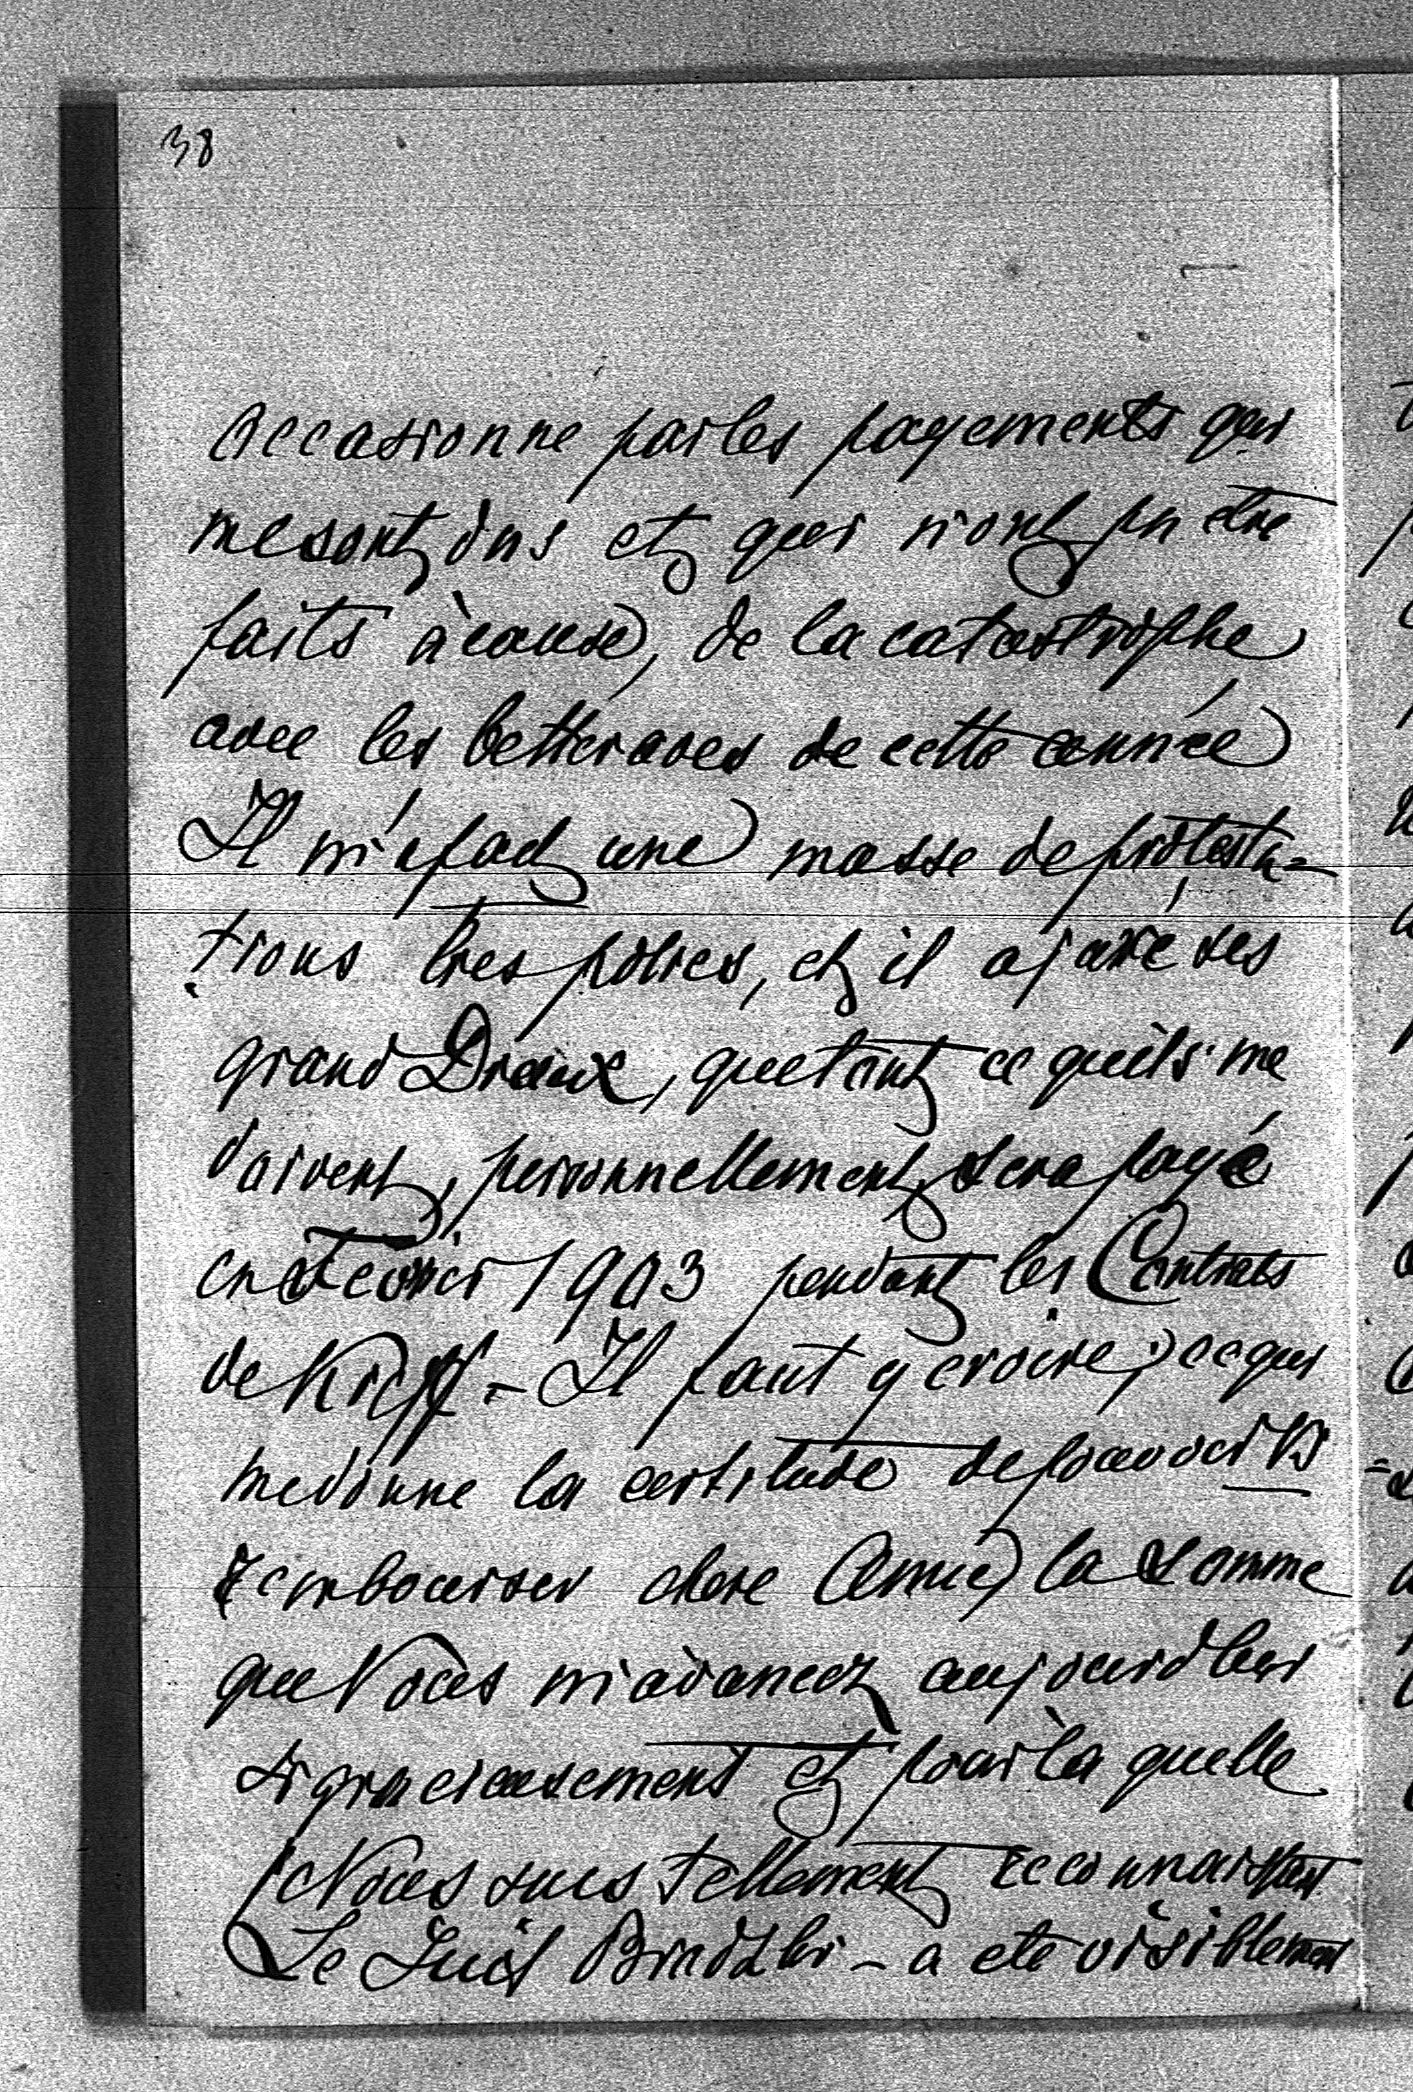 38
occasionne par les payements qui
me sont dus et qui n'ont pu etre
faits à cause, de la catastrophe
avec les betteraves de cette année
Il m'a fait une masse de protesta=
tions tres polies, et il a juré ses
grand Dieux, que tout ce qu'ils me
doivent, personnellement, sera payé
en Fevrier 1903 pendant les Contrats
de Kieff - Il faut y croire, ce qui
me donne la certitude de pouvoir Vs
rembourser chere Amie la somme
que Vous m'avancez aujourd'hui
si gracieusement et pour la quelle
je Vous suis tellement reconnaissant
Le Juif Brodzki - a ete visiblement